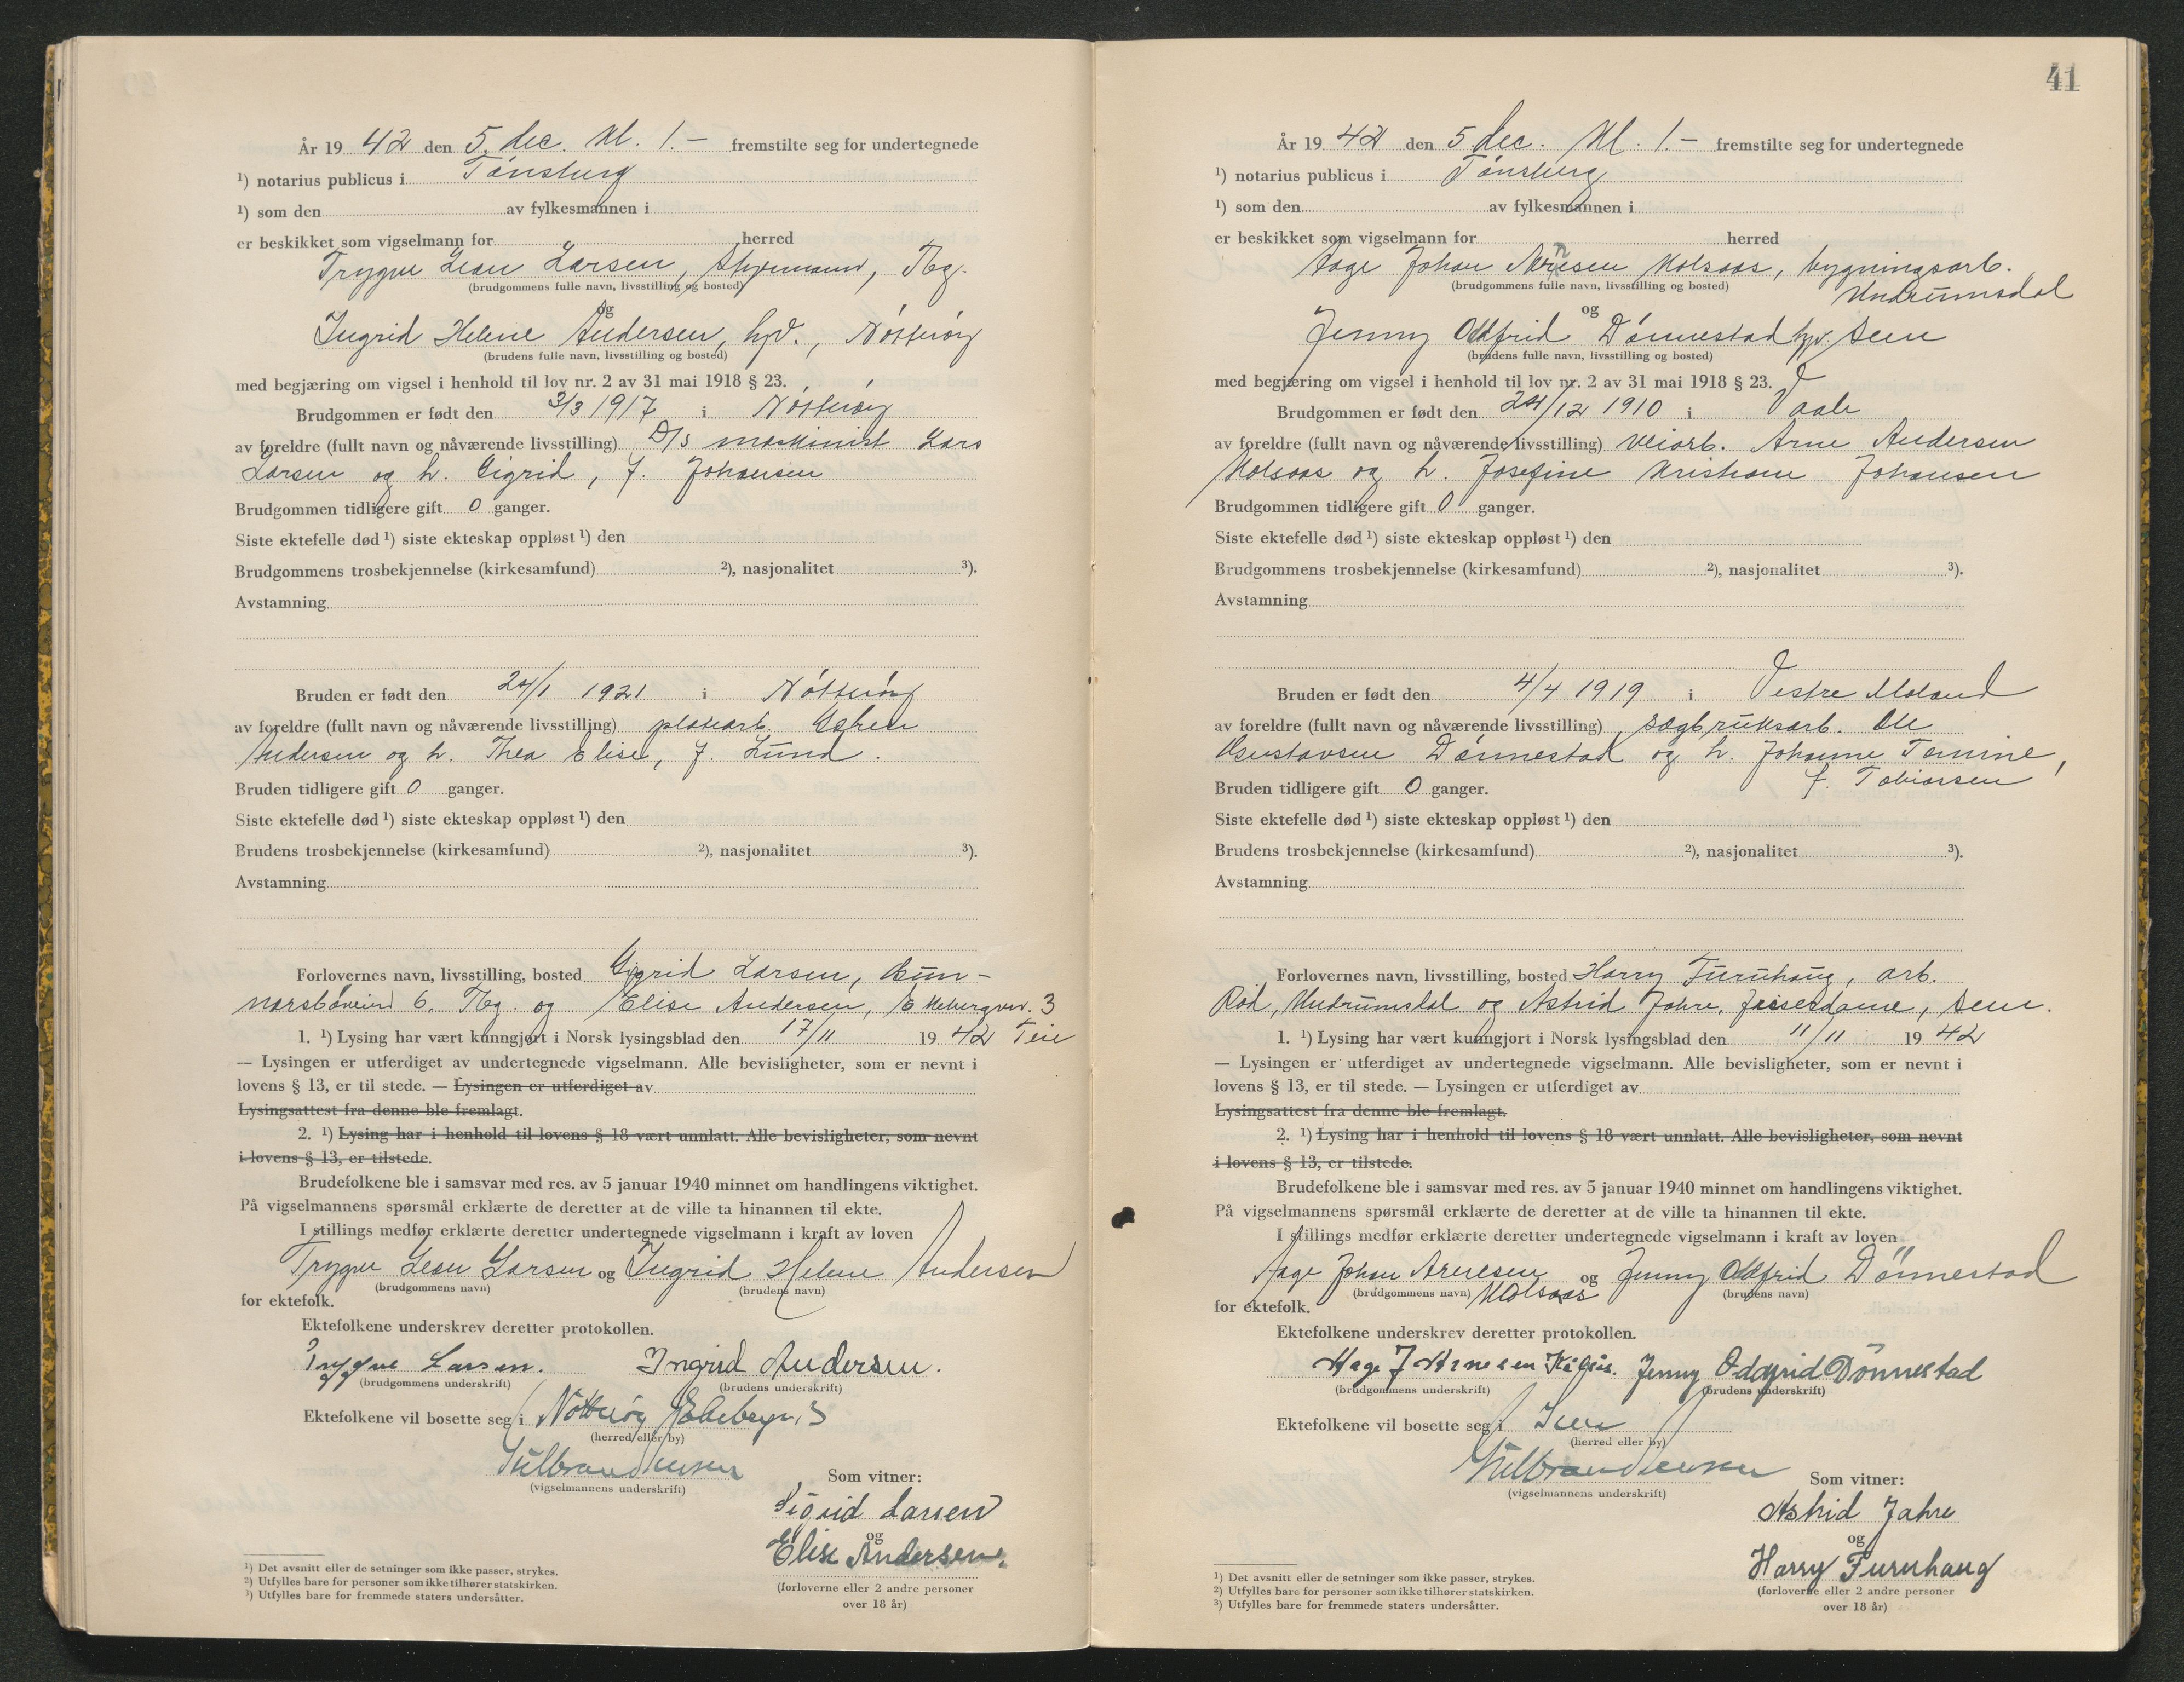 År 19 42 den 5. dec. kl. 1.- fremstilte seg for undertegnede
¹) notarius publicus i Tønsberg
¹) som den av fylkesmannen i
er beskikket som vigselmann for herred
Trygve Lean Larsen, styrmann, Tbg.
(brudgommens fulle navn, livsstilling og bosted)
og
Ingrid Helene Andersen, hjv., Nøtterøy
(brudens fulle navn, livsstilling og bosted)
med begjæring om vigsel i henhold til lov nr. 2 av 31 mai 1918 § 23.
Brudgommen er født den 3/3 1917 i Nøtterøy
av foreldre (fullt navn og nåværende livsstilling) D/S maskinist Lars
Larsen og h. Sigrid, f. Johansen
Brudgommen tidligere gift 0 ganger.
Siste ektefelle død ¹) siste ekteskap oppløst ¹) den
Brudgommens trosbekjennelse (kirkesamfund) ²), nasjonalitet ³).
Avstamning
Bruden er født den 24/1 1921 i Nøtterøy
av foreldre (fullt navn og nåværende livsstilling) platearb.
Andersen og h. Thea Elise, f. Lund.
Bruden tidligere gift 0 ganger.
Siste ektefelle død ¹) siste ekteskap oppløst ¹) den
Brudens trosbekjennelse (kirkesamfund) ²), nasjonalitet ³).
Avstamning
Forlovernes navn, livsstilling, bosted Sigrid Larsen, Gun-
narsbøveien 6. Tbg. og Elise Andersen, Ekebergvn. 3
1. ¹) Lysing har vært kunngjort i Norsk lysingsblad den 17/11 19 42 Teie
— Lysingen er utferdiget av undertegnede vigselmann. Alle bevisligheter, som er nevnt i
lovens § 13, er til stede. — Lysingen er utferdiget av
Lysingsattest fra denne ble fremlagt.
2. ¹) Lysing har i henhold til lovens § 18 vært unnlatt. Alle bevisligheter, som nevnt
i lovens § 13, er tilstede.
Brudefolkene ble i samsvar med res. av 5 januar 1940 minnet om handlingens viktighet.
På vigselmannens spørsmål erklærte de deretter at de ville ta hinannen til ekte.
I stillings medfør erklærte deretter undertegnede vigselmann i kraft av loven
Trygve Lean Larsen og Ingrid Helene Andersen
(brudgommens navn) (brudens navn)
for ektefolk.
Ektefolkene underskrev deretter protokollen.
Trygve Larsen. Ingrid Andersen.
(brudgommens underskrift) (brudens underskrift)
Ektefolkene vil bosette seg i Nøtterøy Ekebergv. 3
(herred eller by)
(vigselmannens underskrift)
Som vitner:
Sigrid Larsen
og
Elise Andersen.
(forloverne eller 2 andre personer
over 18 år)
¹) Det avsnitt eller de setninger som ikke passer, strykes.
²) Utfylles bare for personer som ikke tilhører statskirken.
³) Utfylles bare for fremmede staters undersåtter.
41
År 19 42 den 5 dec. Kl. 1.- fremstilte seg for undertegnede
¹) notarius publicus i Tønsberg
¹) som den av fylkesmannen i
er beskikket som vigselmann for herred
Aage Johan Arnesen Kolsaas, bygningsarb.
(brudgommens fulle navn, livsstilling og bosted)
Undrumsdal
og
Jenny Oddfrid Dønnestad hjv. Sem
(brudens fulle navn, livsstilling og bosted)
med begjæring om vigsel i henhold til lov nr. 2 av 31 mai 1918 § 23.
Brudgommen er født den 24/12 1910 i Vaale
av foreldre (fullt navn og nåværende livsstilling) veiarb. Arne Andersen
Kolsaas og h. Josefine Kristiane Johansen
Brudgommen tidligere gift 0 ganger.
Siste ektefelle død ¹) siste ekteskap oppløst ¹) den
Brudgommens trosbekjennelse (kirkesamfund) ²), nasjonalitet ³).
Avstamning
Bruden er født den 4/4 1919 i Vestre Moland
av foreldre (fullt navn og nåværende livsstilling) sagbruksarb. Ole
Gustavsen Dønnestad og h. Johanne Tomine,
f. Tobiassen
Bruden tidligere gift 0 ganger.
Siste ektefelle død ¹) siste ekteskap oppløst ¹) den
Brudens trosbekjennelse (kirkesamfund) ²), nasjonalitet ³).
Avstamning
Forlovernes navn, livsstilling, bosted Harry Furuhaug, arb.
Rød, Undrumsdal og Astrid Jahre, frisørdame, Sem.
1. ¹) Lysing har vært kunngjort i Norsk lysingsblad den 11/11 19 42
— Lysingen er utferdiget av undertegnede vigselmann. Alle bevisligheter, som er nevnt i
lovens § 13, er til stede. — Lysingen er utferdiget av
Lysingsattest fra denne ble fremlagt.
2. ¹) Lysing har i henhold til lovens § 18 vært unnlatt. Alle bevisligheter, som nevnt
i lovens § 13, er tilstede.
Brudefolkene ble i samsvar med res. av 5 januar 1940 minnet om handlingens viktighet.
På vigselmannens spørsmål erklærte de deretter at de ville ta hinannen til ekte.
I stillings medfør erklærte deretter undertegnede vigselmann i kraft av loven
Aage Johan Arnesen og Jenny Oddfrid Dønnestad
(brudgommens navn) Kolsaas (brudens navn)
for ektefolk.
Ektefolkene underskrev deretter protokollen.
Aage J Arnesen Kolsås. Jenny Oddfrid Dønnestad
(brudgommens underskrift) (brudens underskrift)
Ektefolkene vil bosette seg i Sem
(herred eller by)
(vigselmannens underskrift)
Som vitner:
Astrid Jahre
og
Harry Furuhaug
(forloverne eller 2 andre personer
over 18 år)
¹) Det avsnitt eller de setninger som ikke passer, strykes.
²) Utfylles bare for personer som ikke tilhører statskirken.
³) Utfylles bare for fremmede staters undersåtter.